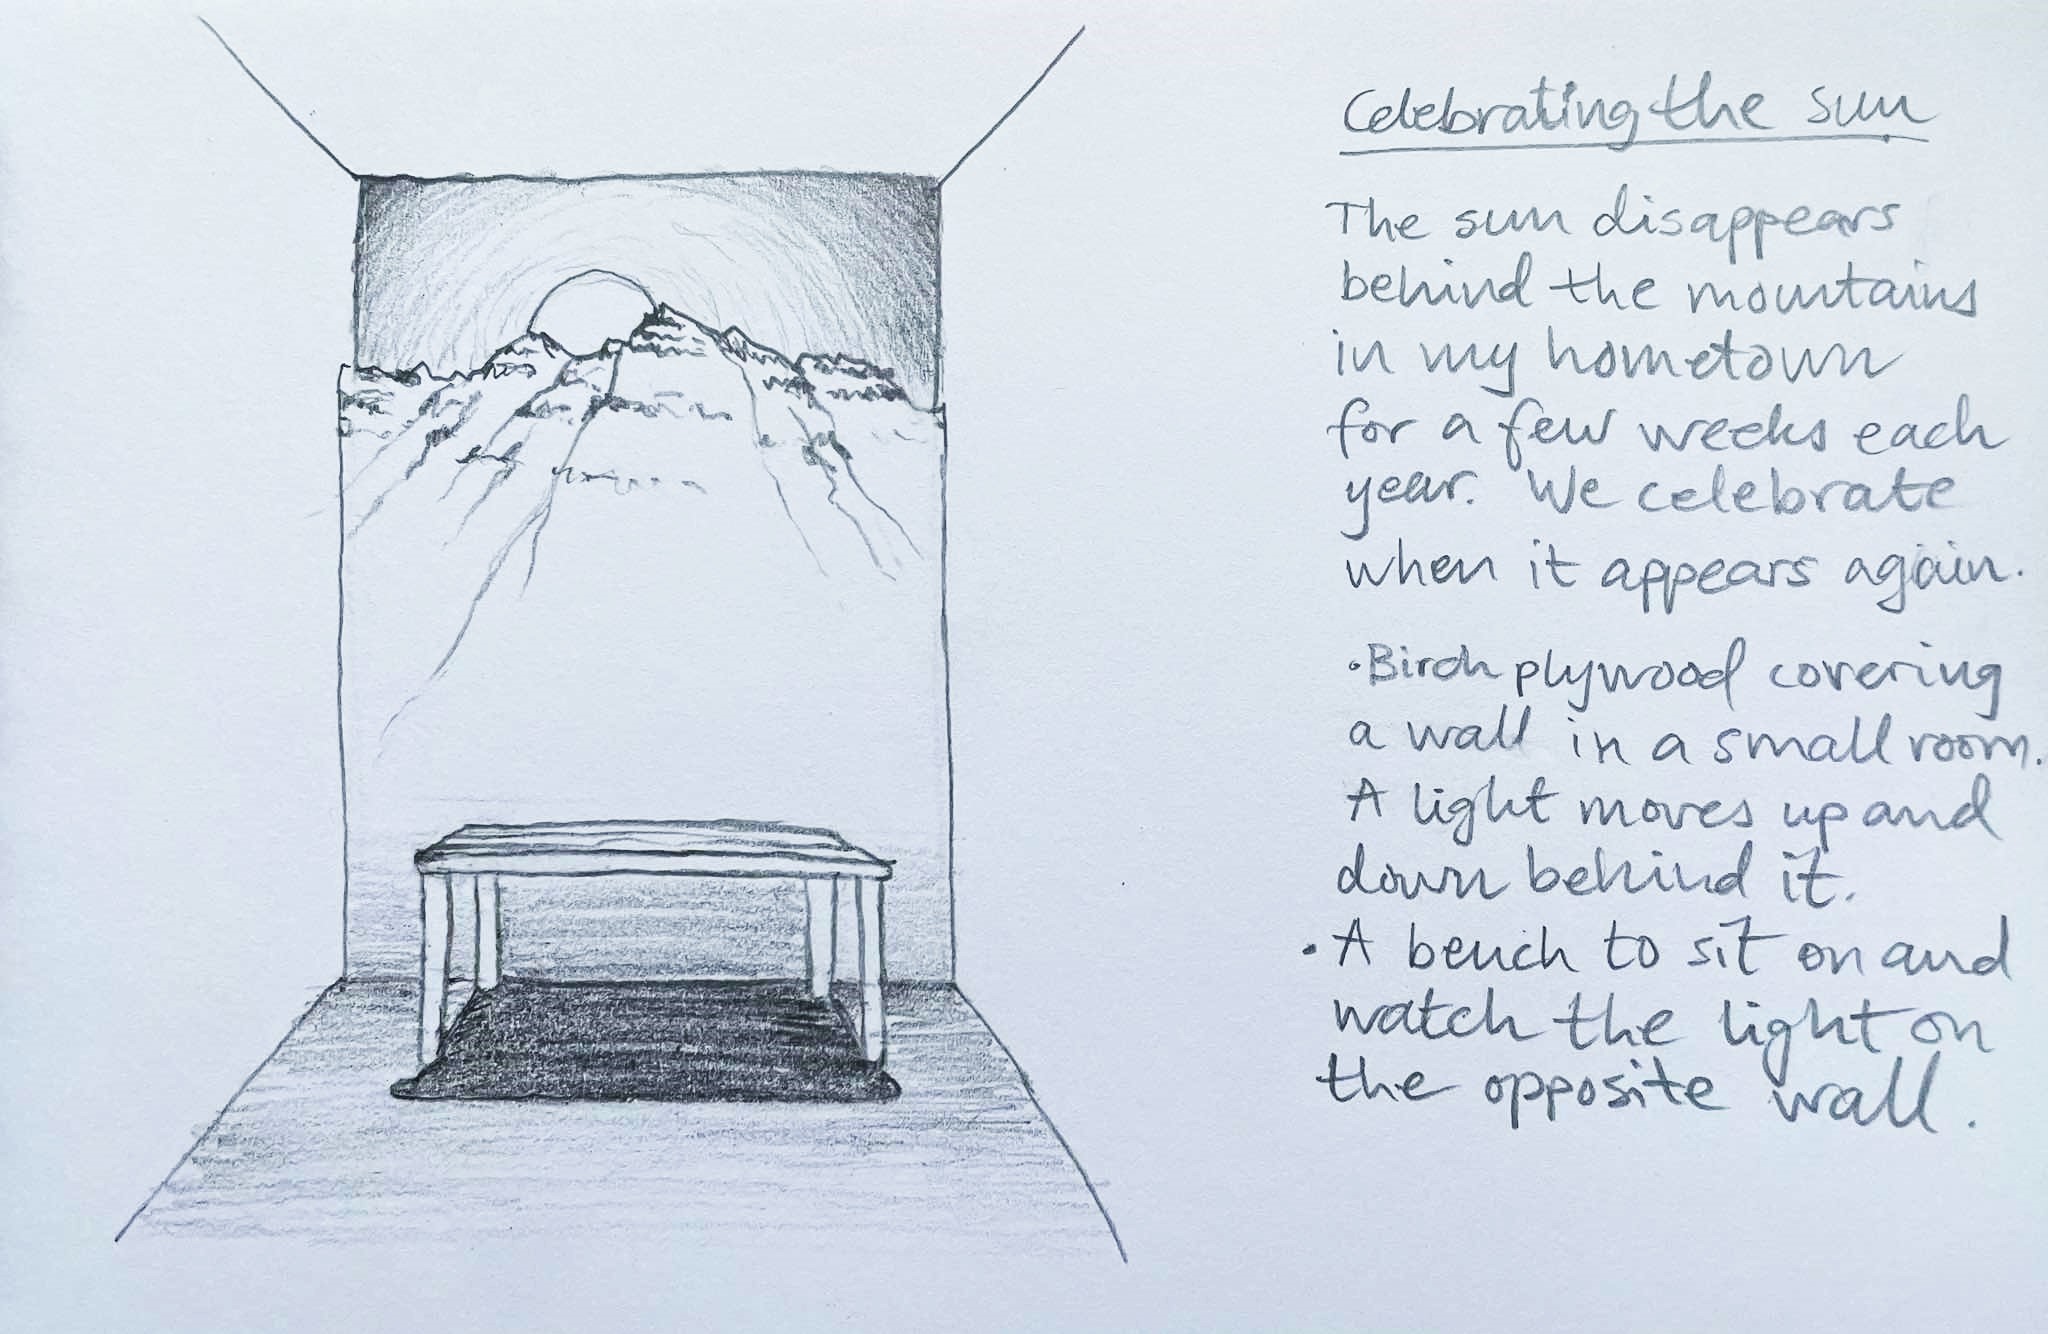 Celebrating the sun
The sun disappears
behind the mountains
in my hometown
for a few weeks each
year. We celebrate
when it appears again.
• Birch plywood covering
a wall in a small room.
A light moves up and
down behind it.
• A bench to sit on and
watch the light on
the opposite wall.